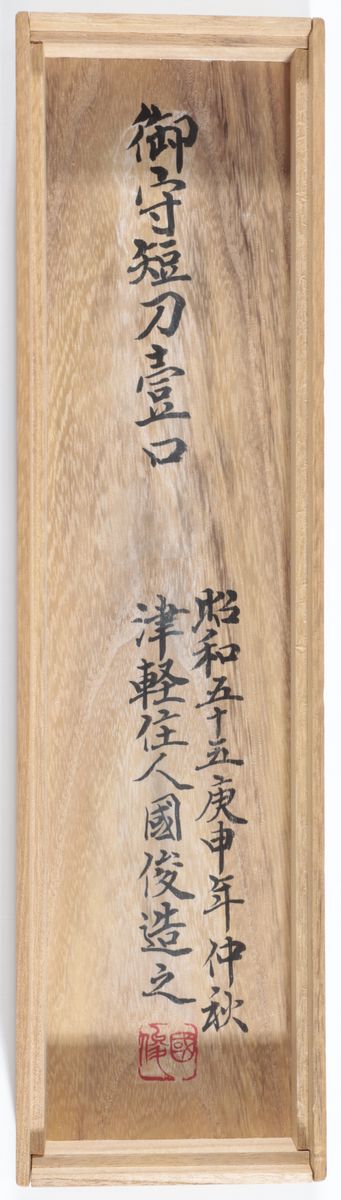 御守短刀壹口
昭和五十五庚申年仲秋
津軽住人國俊造之
國俊